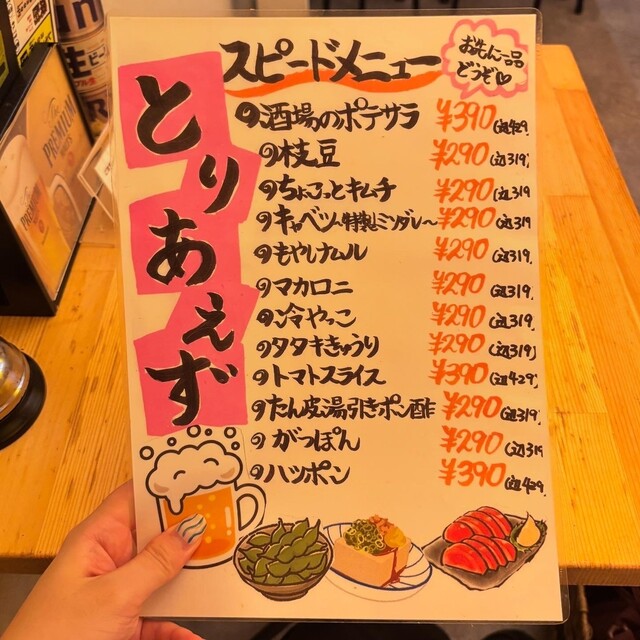 スピードメニュー
お先に一品
どうぞ♡
とりあえず
酒場のポテサラ ¥390(込429)
枝豆 ¥290(込319)
ちょこっとキムチ ¥290(込319
キャベツ〜特製ミソダレ〜 ¥290(込319)
もやしナムル ¥290(込319)
マカロニ ¥290(込319)
冷やっこ ¥290(込319)
タタキきゅうり ¥290(込319)
トマトスライス ¥390(込429)
たん皮湯引きポン酢 ¥290(込319)
がっぽん ¥290(込319
ハツポン ¥390(込429
PREMIUM
生